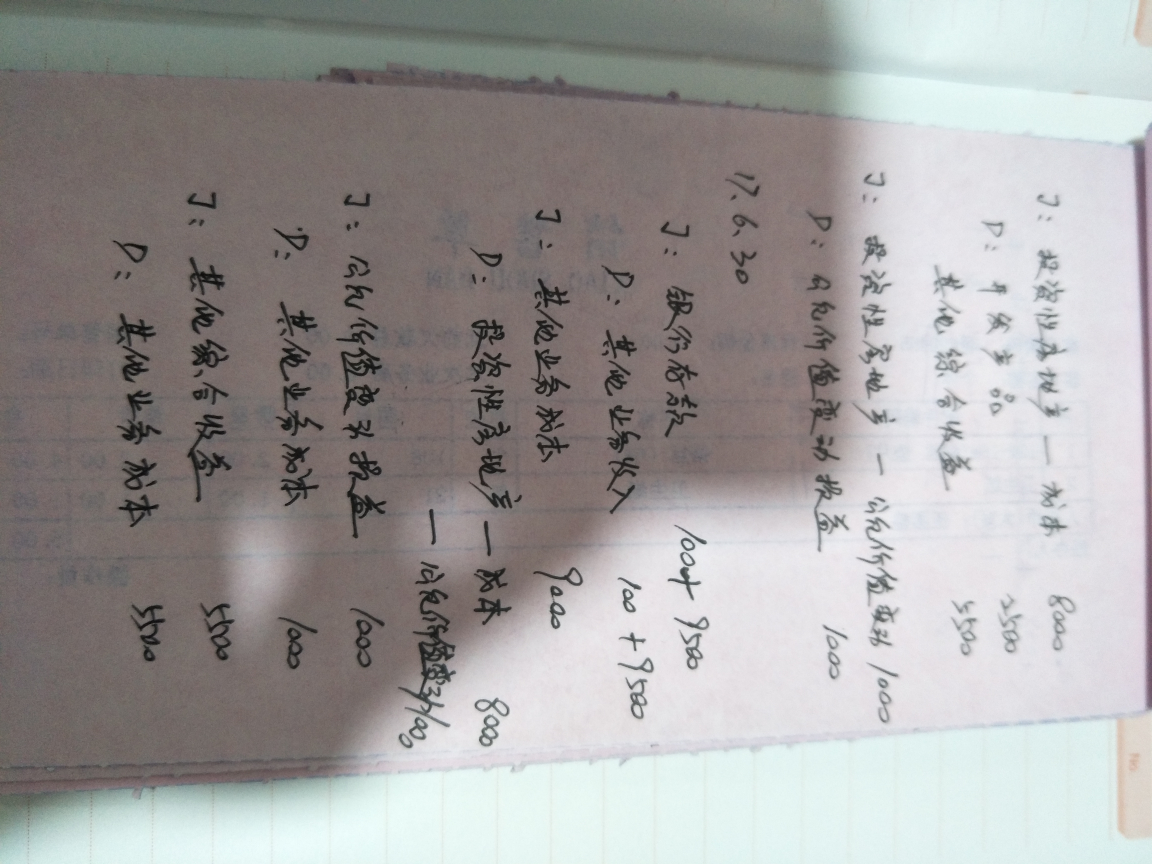 J: 投资性房地产 — 成本 8000
D: 开发产品 2500
其他综合收益 5500
J: 投资性房地产 — 公允价值变动 1000
D: 公允价值变动损益 1000
17.6.30
J: 银行存款 100+9500
D: 其他业务收入 100+9500
J: 其他业务成本 9000
D: 投资性房地产 — 成本 8000
— 公允价值变动 1000
J: 公允价值变动损益 1000
D: 其他业务成本 1000
J: 其他综合收益 5500
D: 其他业务成本 5500